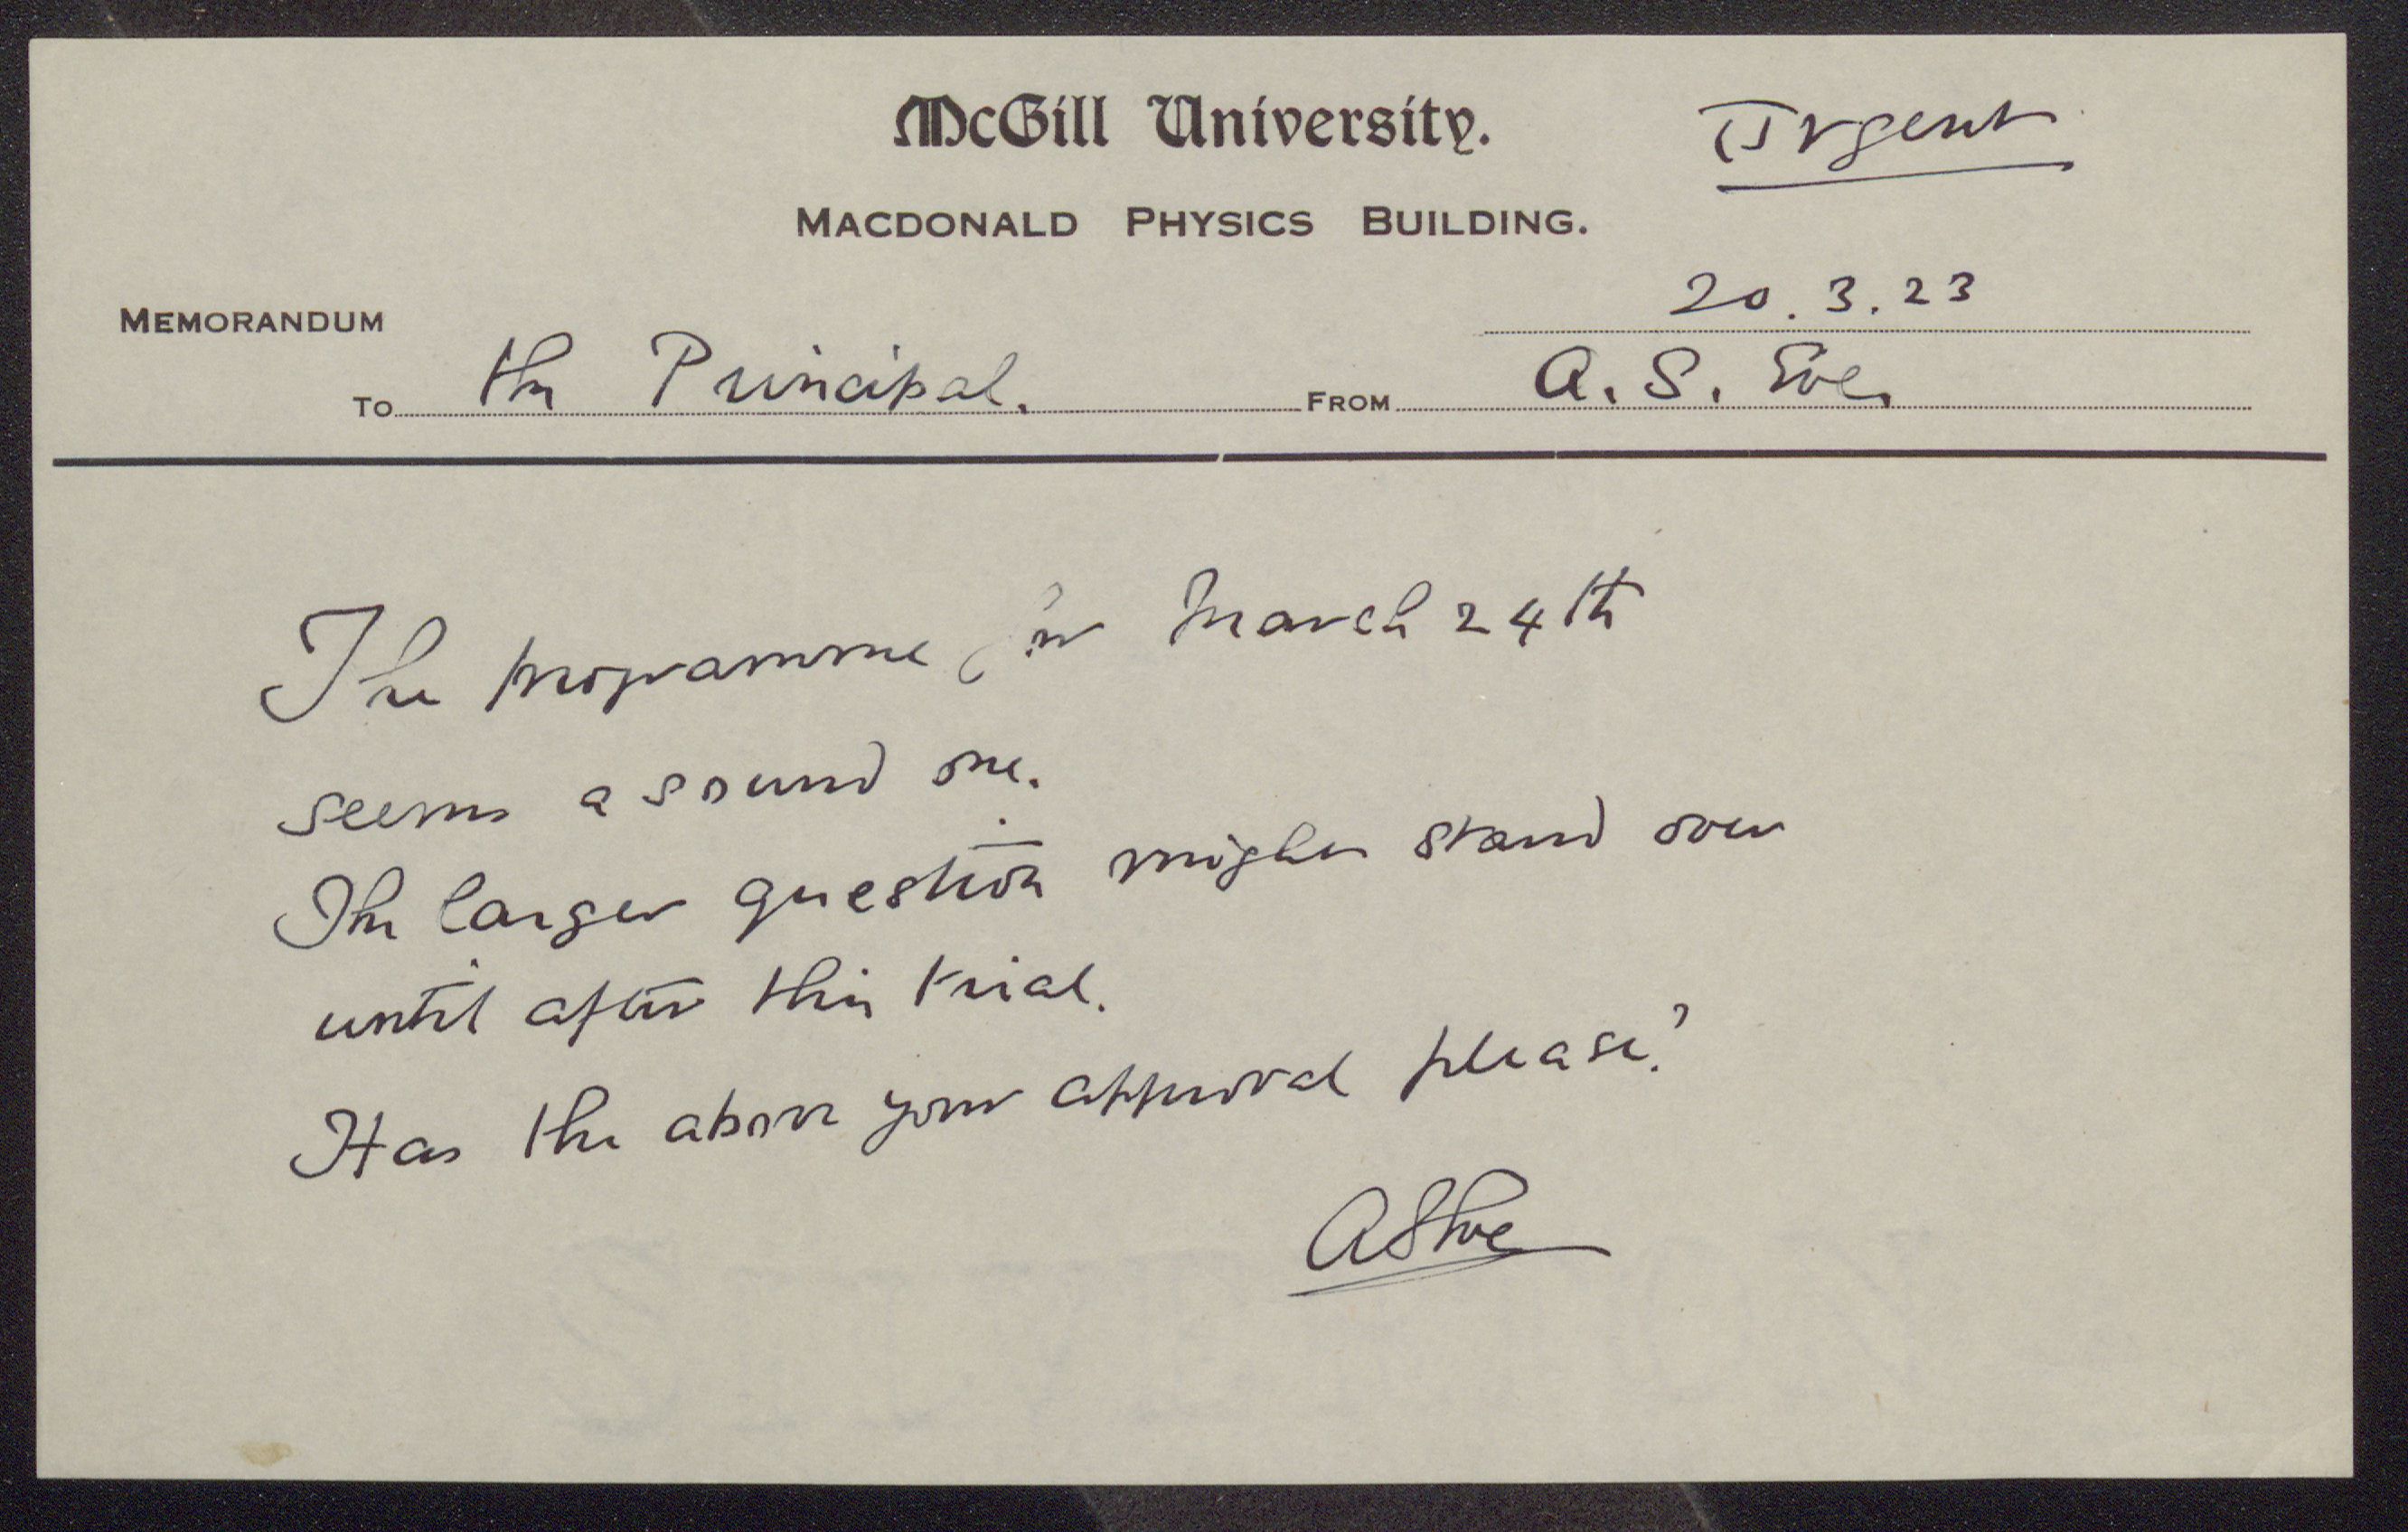 McGill University.
Urgent
MACDONALD PHYSICS BUILDING.
20.3.23
MEMORANDUM
TO the Principal. FROM A. S. Eve.
The programme for March 24th
seems a sound one.
The larger question might stand over
until after this trial.
Has the above your approval please?
ASEve